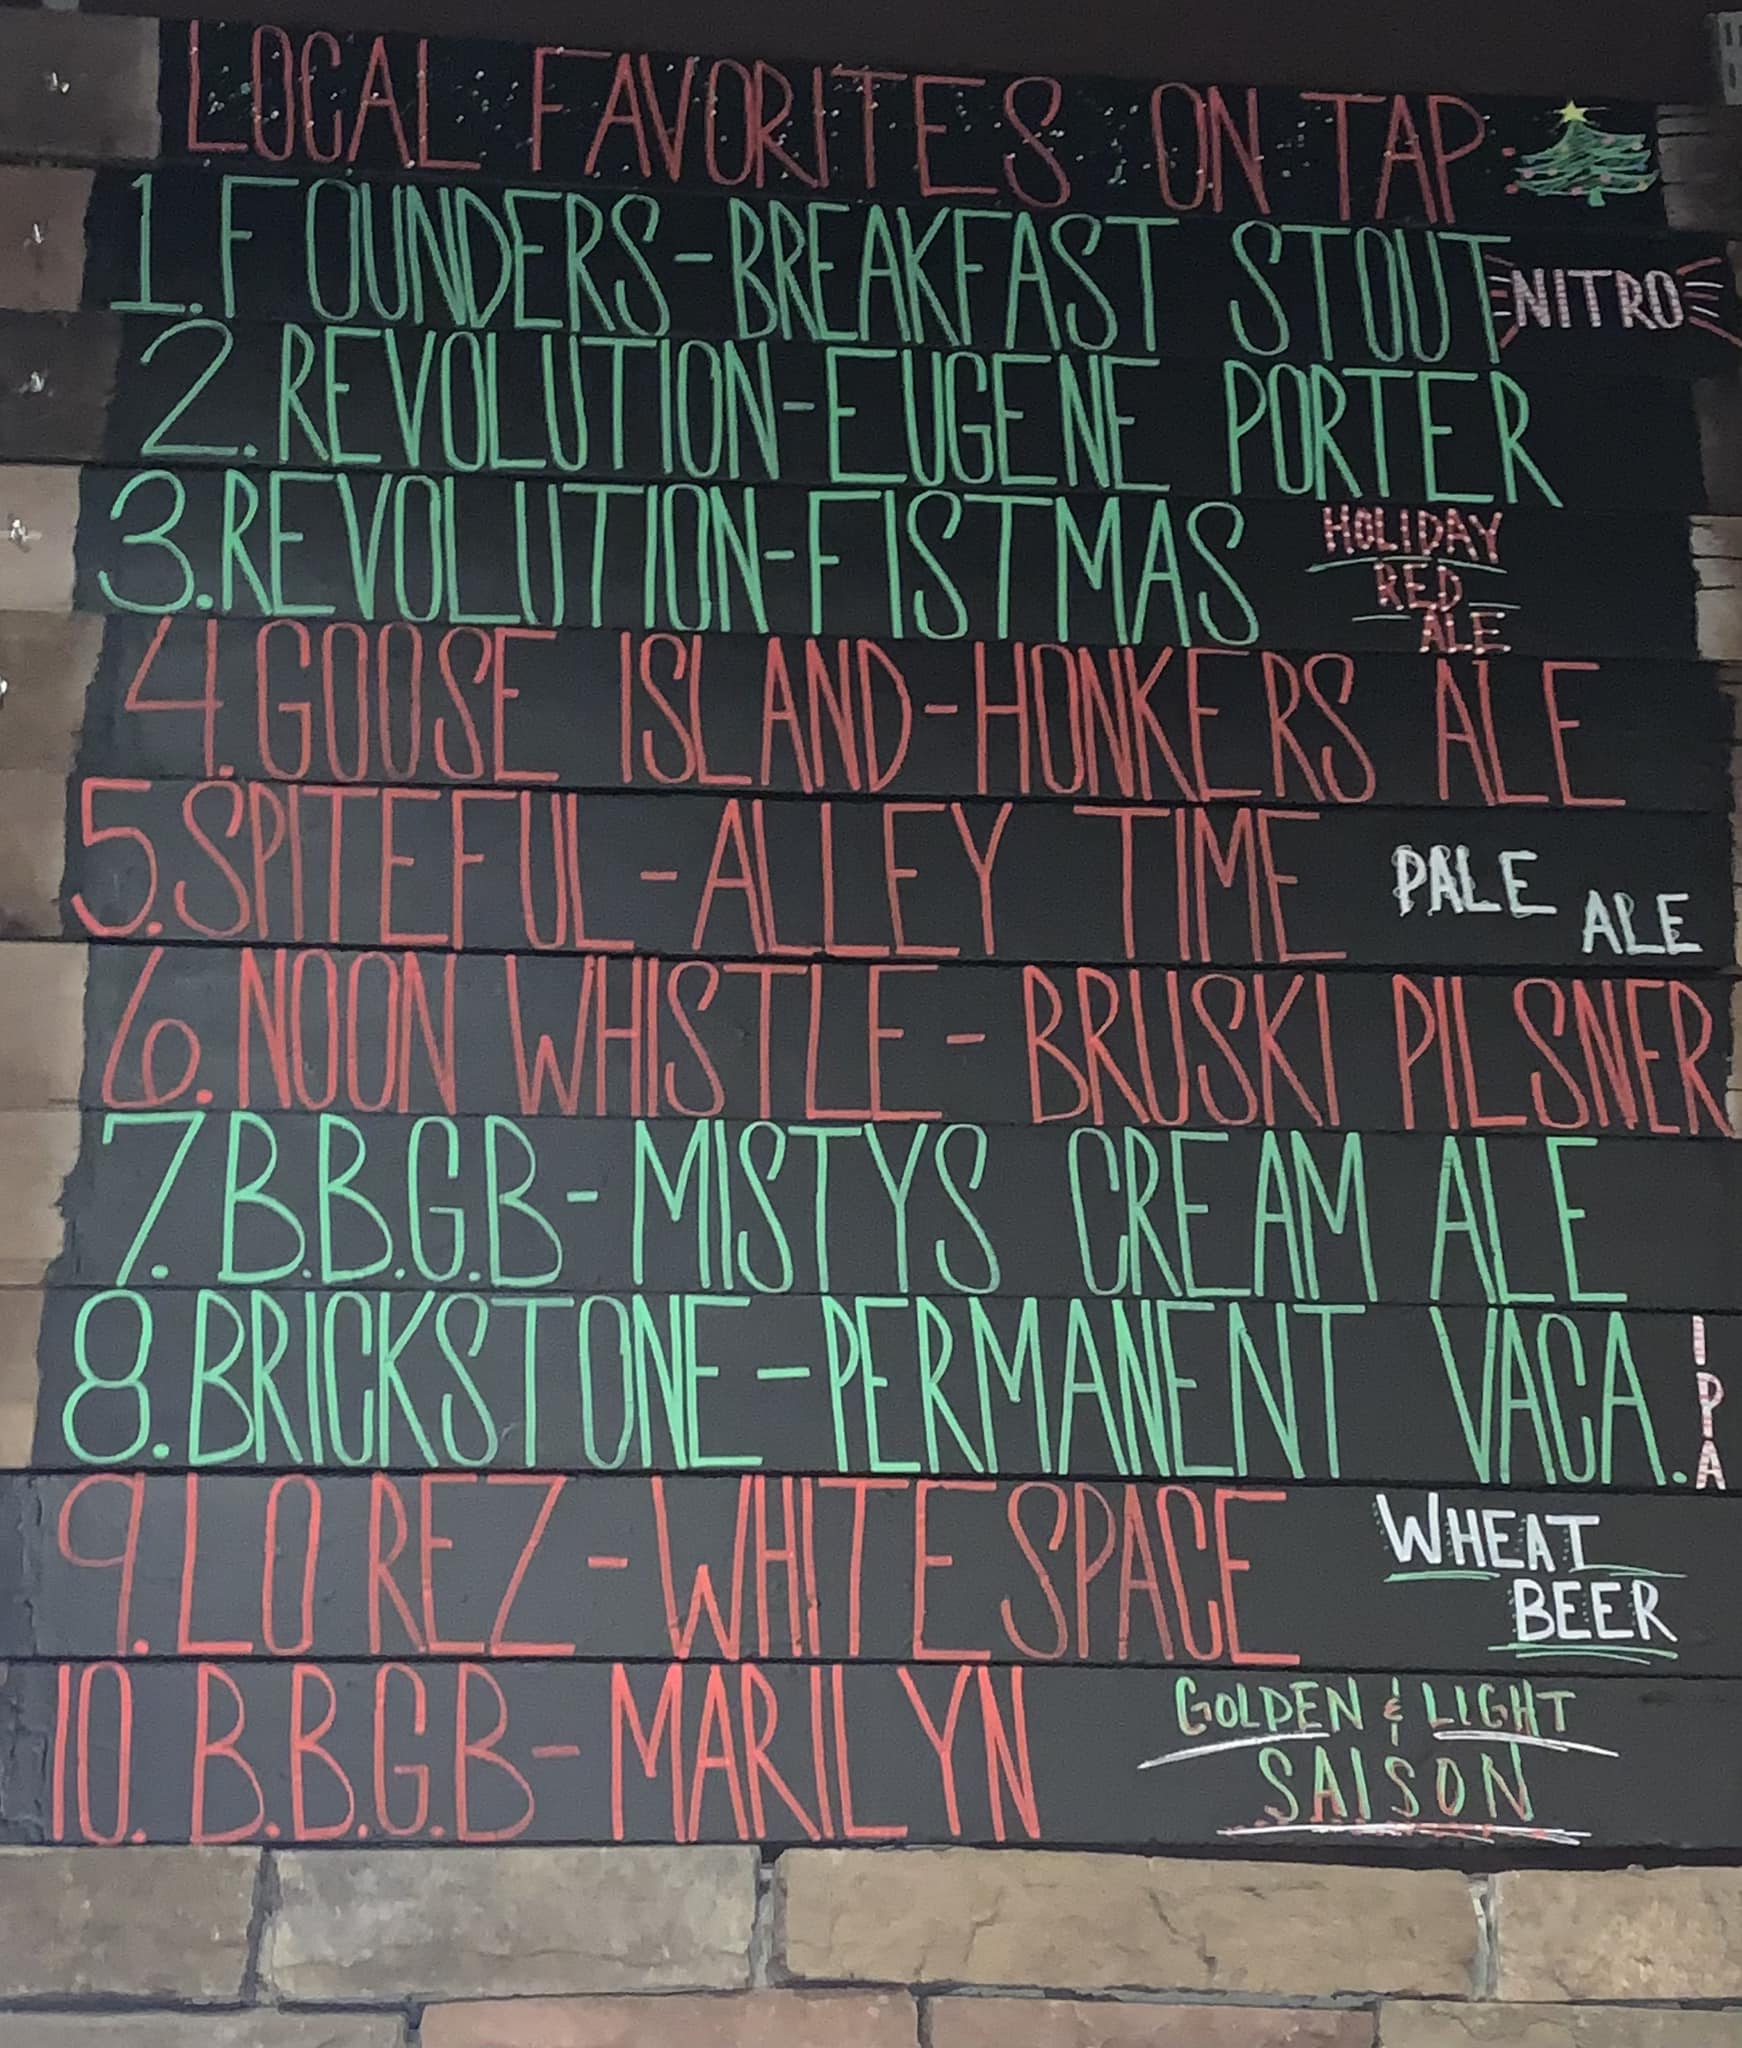 LOCAL FAVORITES ON TAP
1. FOUNDERS - BREAKFAST STOUT NITRO
2. REVOLUTION - EUGENE PORTER
3. REVOLUTION - FISTMAS HOLIDAY
RED
ALE
4. GOOSE ISLAND - HONKERS ALE
5. SPITEFUL - ALLEY TIME PALE ALE
6. NOON WHISTLE - BRUSKI PILSNER
7. B.B.G.B - MISTYS CREAM ALE
8. BRICKSTONE - PERMANENT VACA. IPA
9. LO REZ - WHITE SPACE WHEAT
BEER
10. B.B.G.B - MARILYN GOLDEN & LIGHT
SAISON